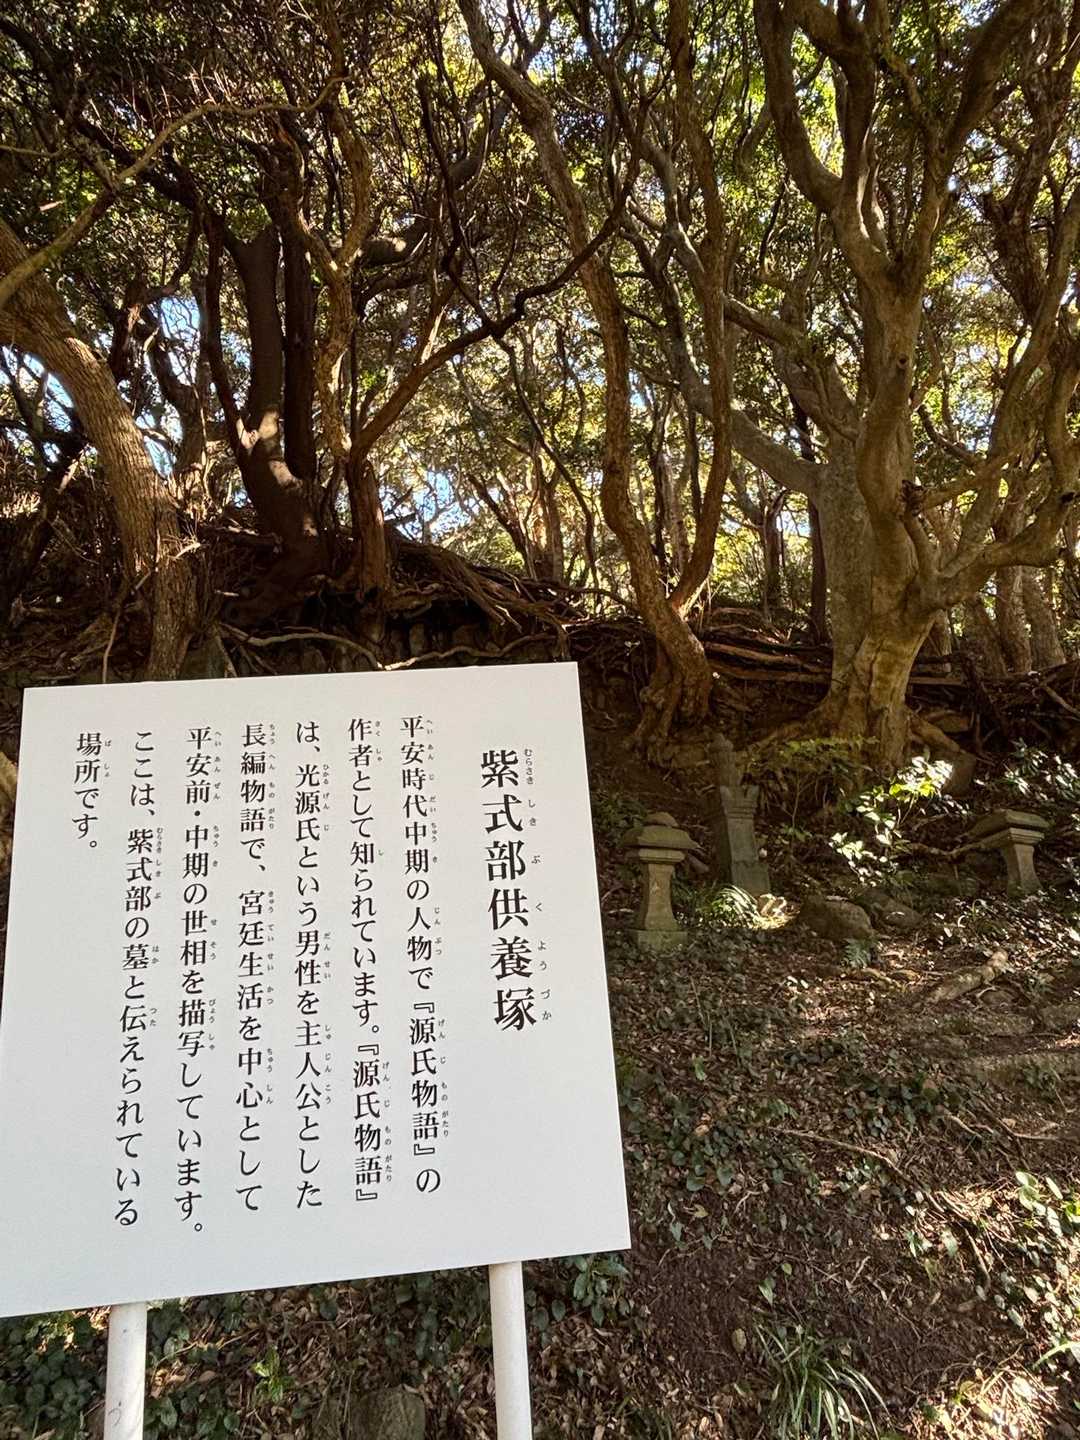 紫式部供養塚
平安時代中期の人物で『源氏物語』の
作者として知られています。『源氏物語』
は、光源氏という男性を主人公とした
長編物語で、宮廷生活を中心として
平安前・中期の世相を描写しています。
ここは、紫式部の墓と伝えられている
場所です。